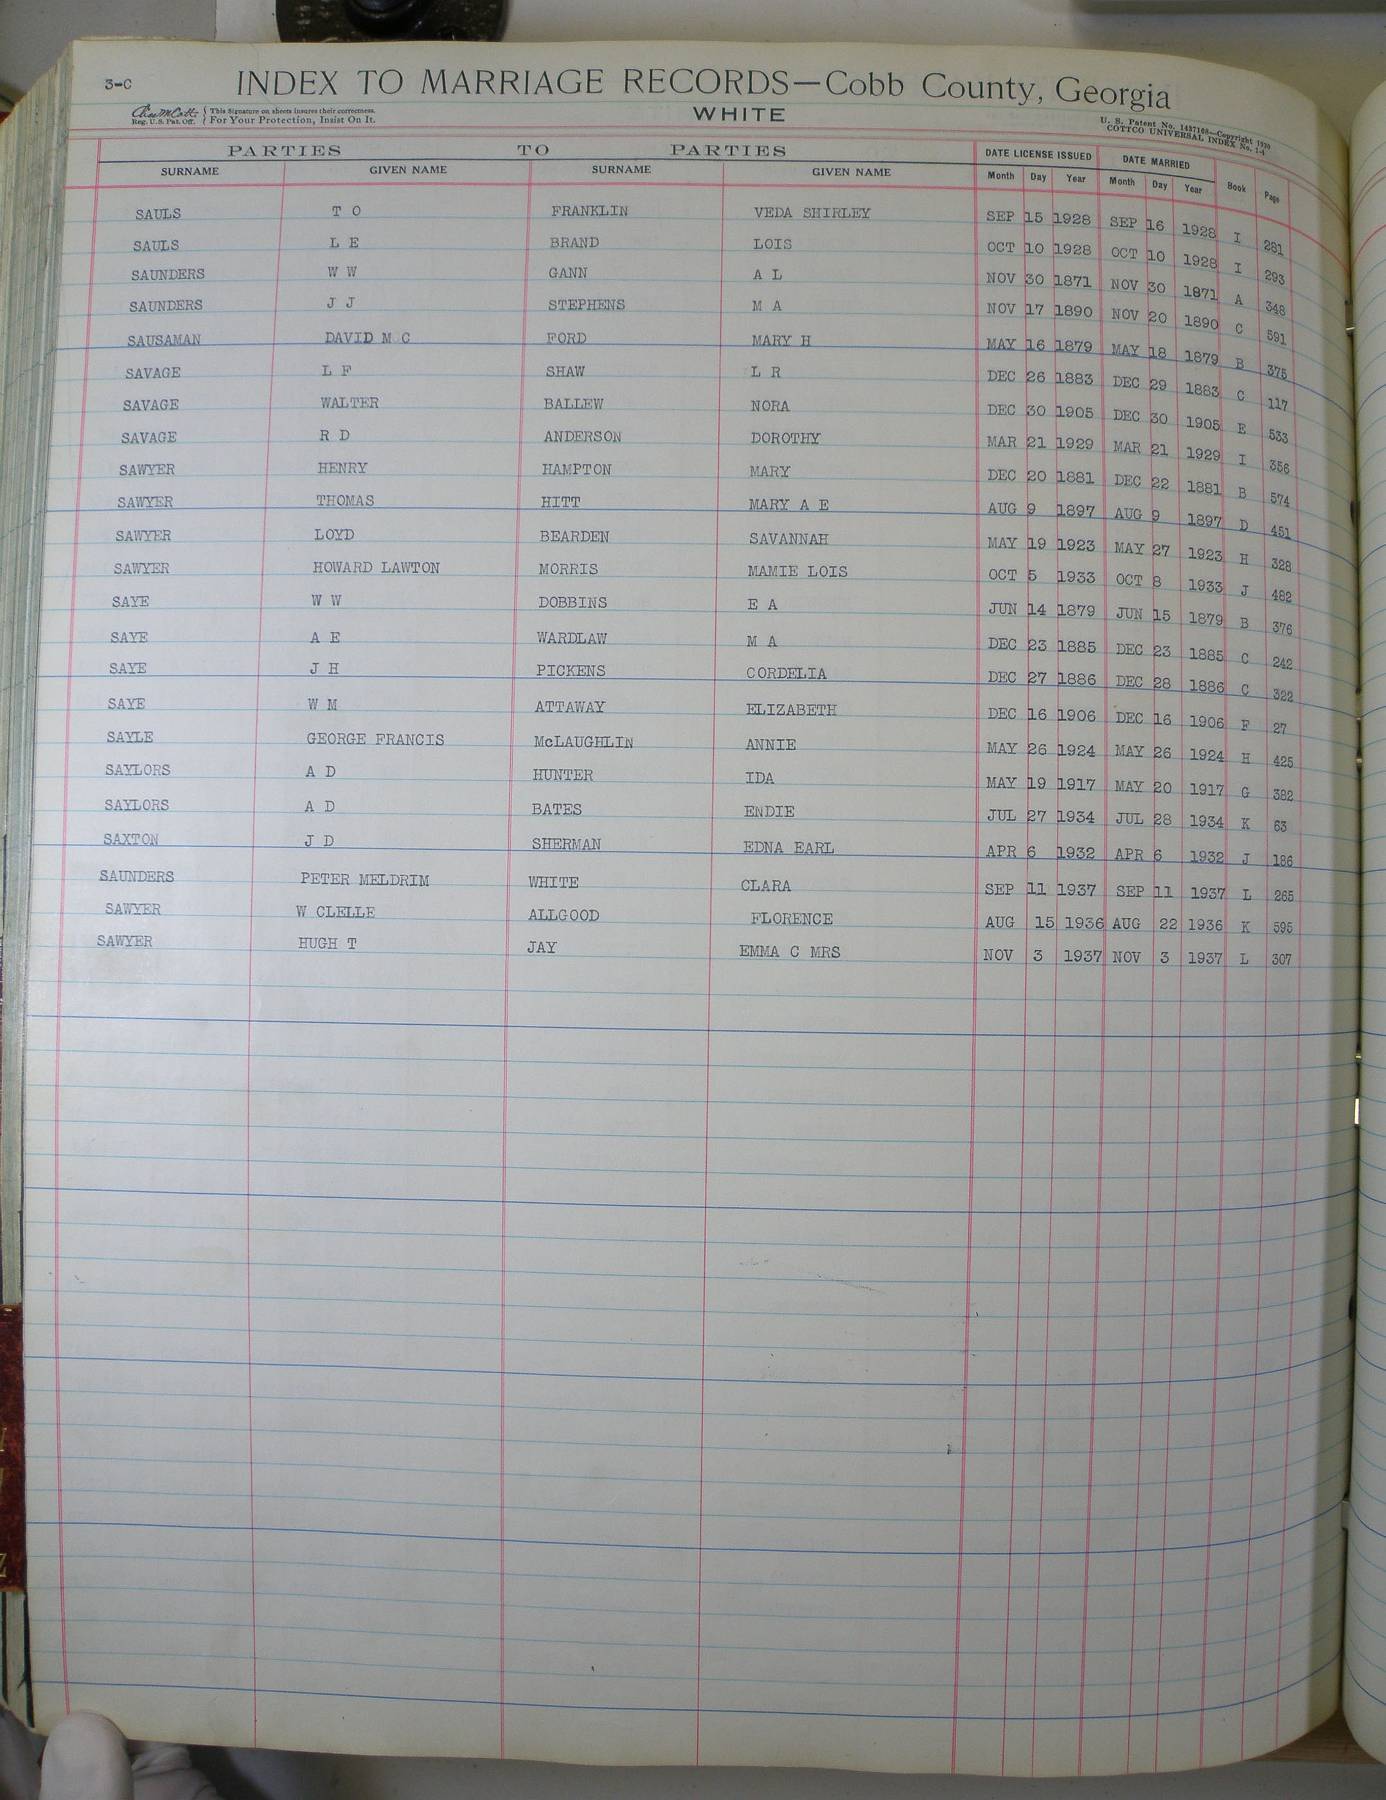 3-C
INDEX TO MARRIAGE RECORDS—Cobb County, Georgia
Reg. U.S. Pat. Off. { This Signature on sheets insures their correctness. For Your Protection, Insist On It.
WHITE
U. S. Patent No. 1437108—Copyright 1930
COTTCO UNIVERSAL INDEX No. 1-4
PARTIES TO PARTIES DATE LICENSE ISSUED DATE MARRIED
SURNAME GIVEN NAME SURNAME GIVEN NAME Month Day Year Month Day Year Book Page
SAULS T O FRANKLIN VEDA SHIRLEY SEP 15 1928 SEP 16 1928 I 281
SAULS L E BRAND LOIS OCT 10 1928 OCT 10 1928 I 293
SAUNDERS W W GANN A L NOV 30 1871 NOV 30 1871 A 348
SAUNDERS J J STEPHENS M A NOV 17 1890 NOV 20 1890 C 591
SAUSAMAN DAVID M C FORD MARY H MAY 16 1879 MAY 18 1879 B 375
SAVAGE L F SHAW L R DEC 26 1883 DEC 29 1883 C 117
SAVAGE WALTER BALLEW NORA DEC 30 1905 DEC 30 1905 E 533
SAVAGE R D ANDERSON DOROTHY MAR 21 1929 MAR 21 1929 I 356
SAWYER HENRY HAMPTON MARY DEC 20 1881 DEC 22 1881 B 574
SAWYER THOMAS HITT MARY A E AUG 9 1897 AUG 9 1897 D 451
SAWYER LOYD BEARDEN SAVANNAH MAY 19 1923 MAY 27 1923 H 328
SAWYER HOWARD LAWTON MORRIS MAMIE LOIS OCT 5 1933 OCT 8 1933 J 482
SAYE W W DOBBINS E A JUN 14 1879 JUN 15 1879 B 376
SAYE A E WARDLAW M A DEC 23 1885 DEC 23 1885 C 242
SAYE J H PICKENS CORDELIA DEC 27 1886 DEC 28 1886 C 322
SAYE W M ATTAWAY ELIZABETH DEC 16 1906 DEC 16 1906 F 27
SAYLE GEORGE FRANCIS McLAUGHLIN ANNIE MAY 26 1924 MAY 26 1924 H 425
SAYLORS A D HUNTER IDA MAY 19 1917 MAY 20 1917 G 382
SAYLORS A D BATES ENDIE JUL 27 1934 JUL 28 1934 K 63
SAXTON J D SHERMAN EDNA EARL APR 6 1932 APR 6 1932 J 186
SAUNDERS PETER MELDRIM WHITE CLARA SEP 11 1937 SEP 11 1937 L 265
SAWYER W CLELLE ALLGOOD FLORENCE AUG 15 1936 AUG 22 1936 K 595
SAWYER HUGH T JAY EMMA C MRS NOV 3 1937 NOV 3 1937 L 307